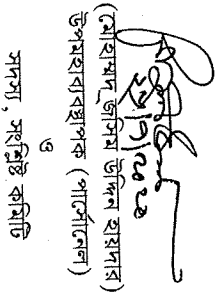 (মোহাম্মদ জসিম উদ্দিন হায়দার)
উপমহাব্যবস্থাপক (পার্সোনেল)
ও
সদস্য, সংশ্লিষ্ট কমিটি